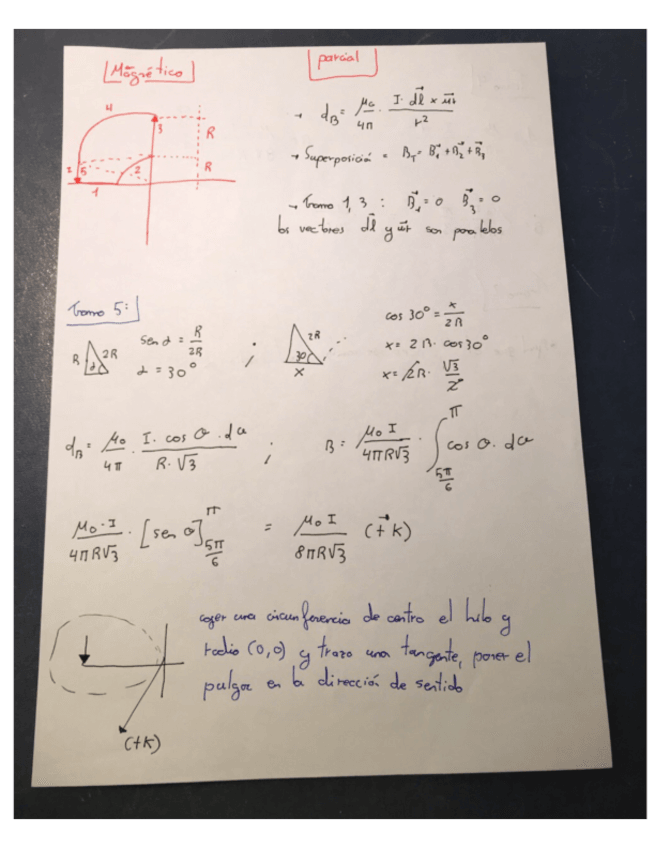 Magnético
parcial
4
3
R
2
5
2
R
1
→ dB = μ₀/4π · I · dl⃗ × u⃗r / r²
→ Superposición = B⃗T = B⃗₁ + B⃗₂ + B⃗₃
→ Tramo 1, 3 : B⃗₁ = 0 B⃗₃ = 0
los vectores dl⃗ y u⃗r son paralelos
Tramo 5:
R 2R α
sen α = R/2R
α = 30°
;
2R 30 x
cos 30° = x/2R
x = 2R · cos 30°
x = 2R · √3/2
dB = μ₀/4π · I · cos θ · dθ / R · √3 ; B = μ₀ I / 4πR√3 · ∫_{5π/6}^{π} cos θ · dθ
μ₀ · I / 4πR√3 · [sen θ]_{5π/6}^{π} = μ₀ I / 8πR√3 (+k⃗)
coger una circunferencia de centro el hilo y
radio (0,0) y trazo una tangente, poner el
pulgar en la dirección de sentido
(+k)